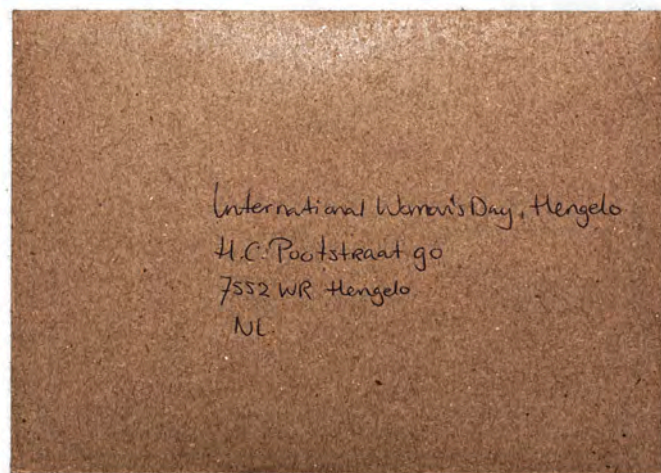 International Women's Day, Hengelo
H.C. Pootstraat 90
7552 WR Hengelo
NL